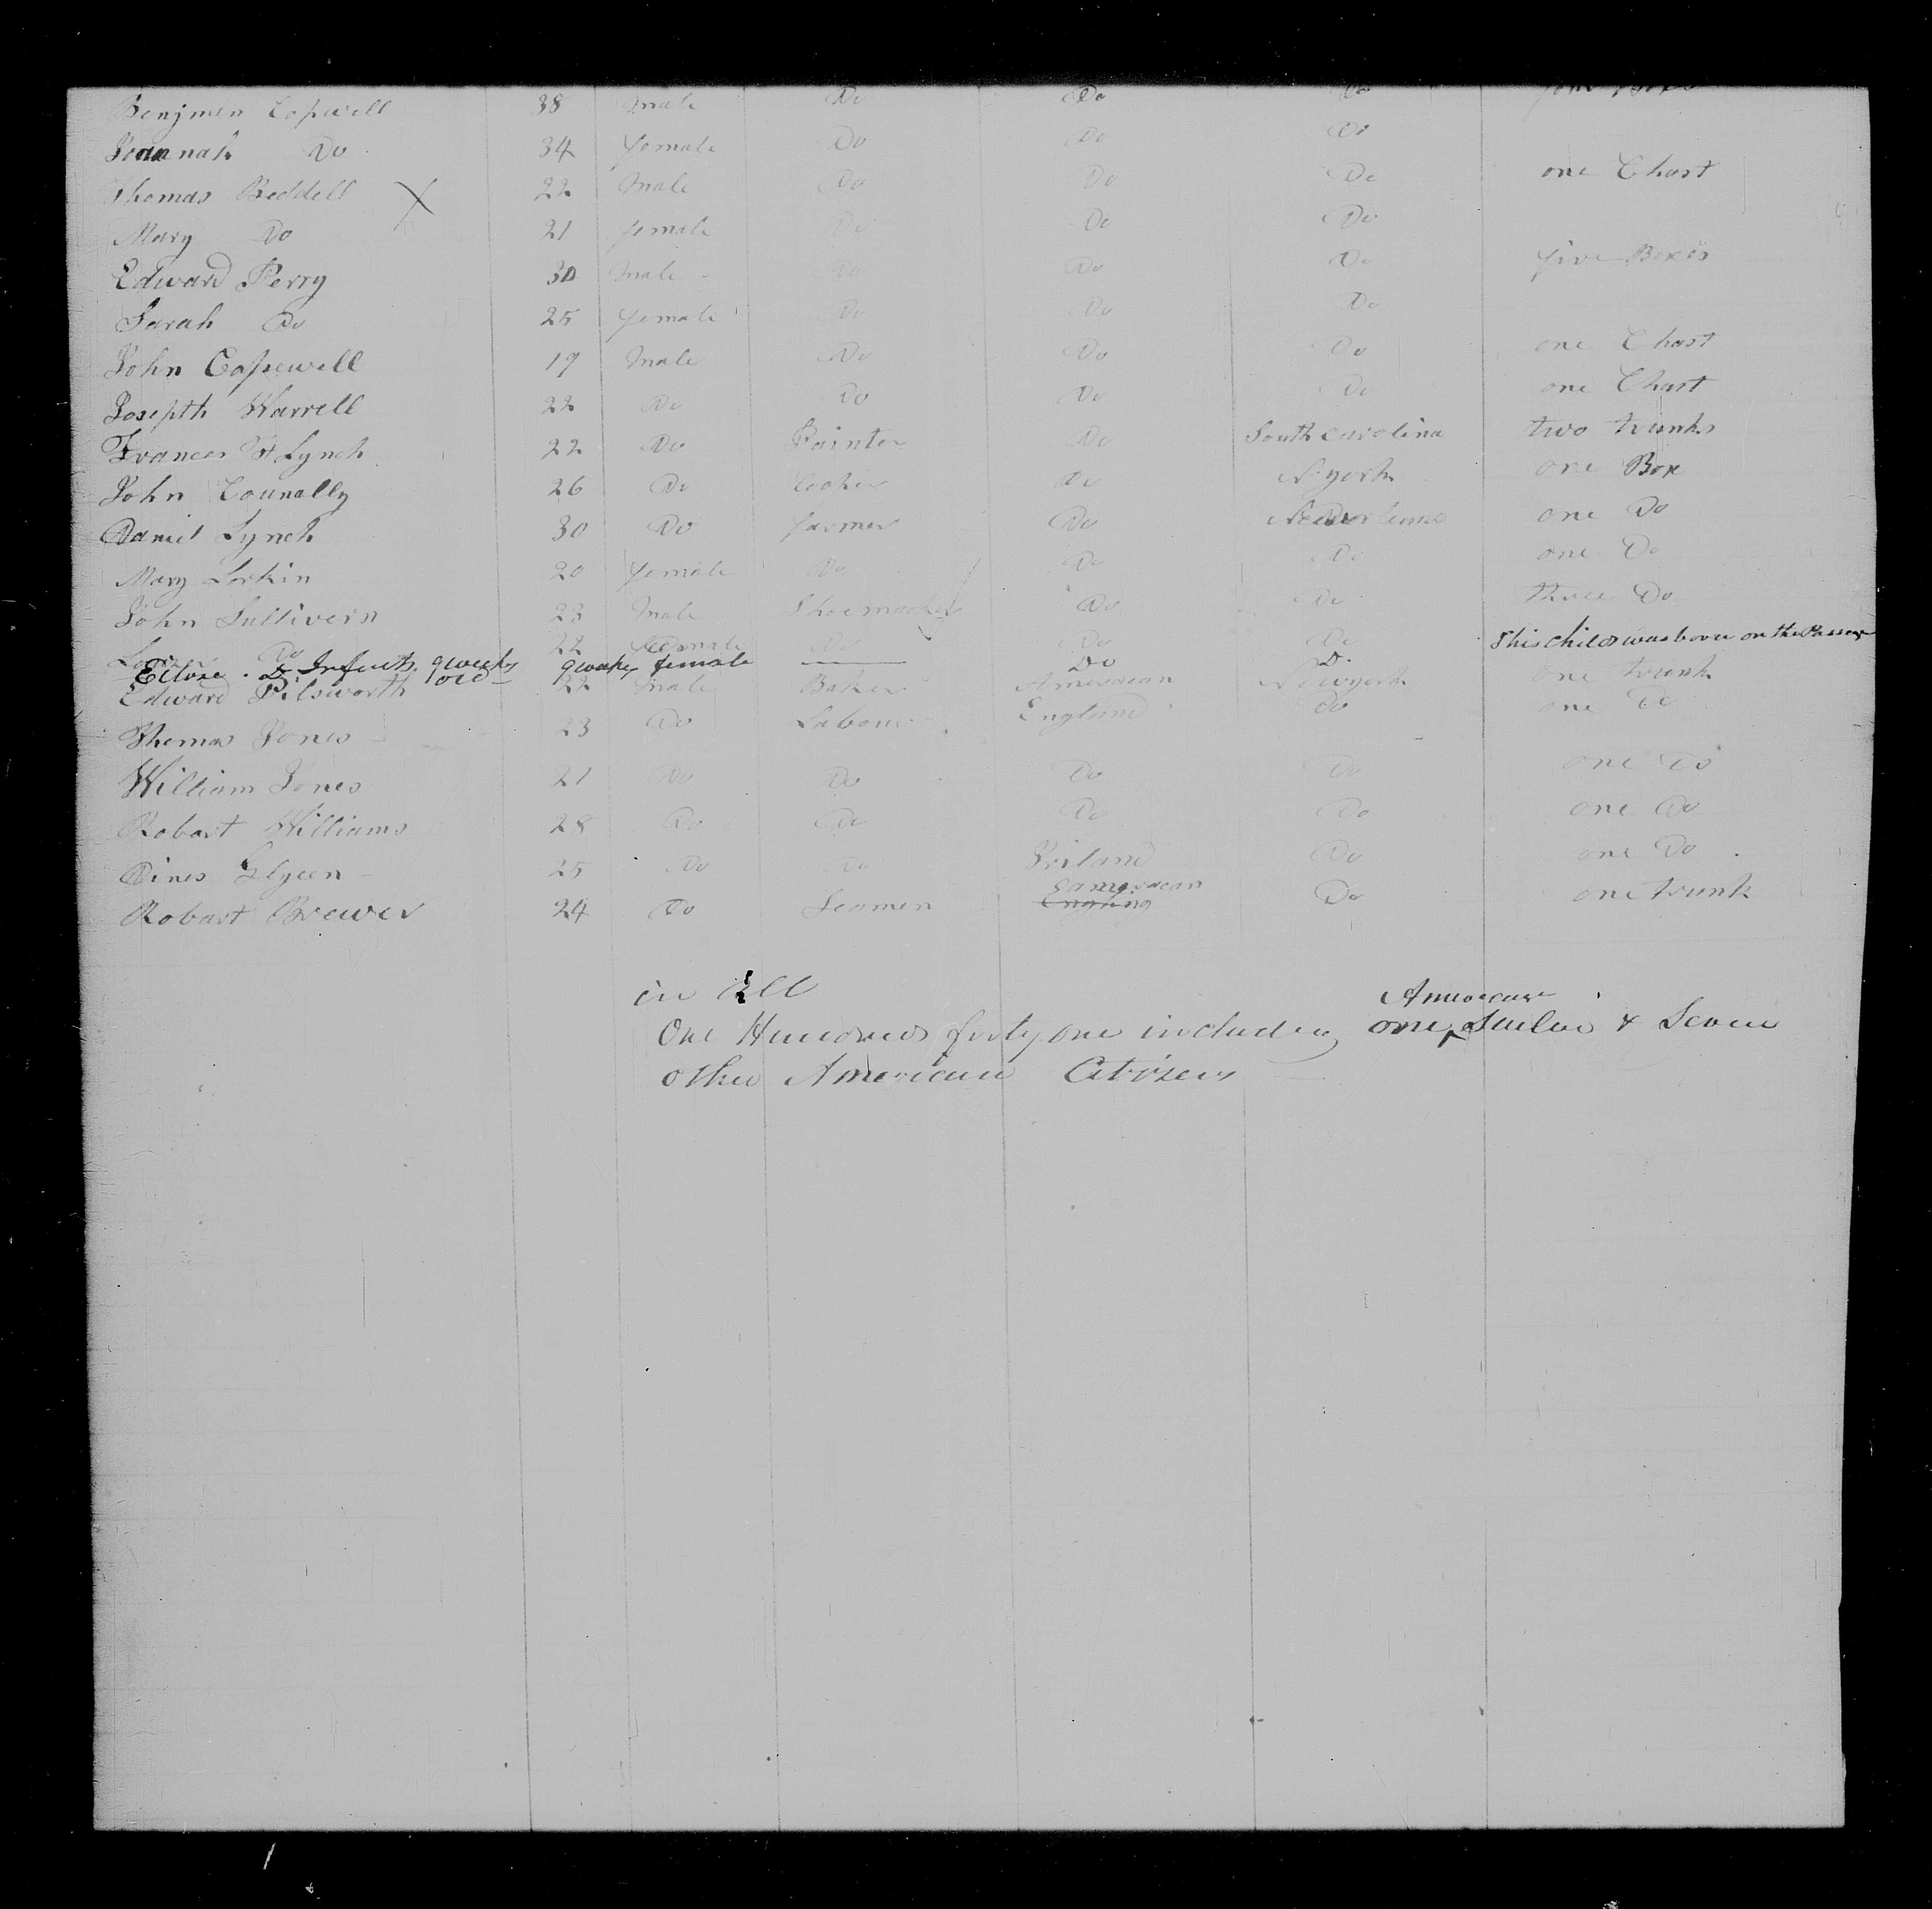 Benjmen Copewell 38 male Do Do Do four Boxes
Hannah Do 34 female Do Do Do
Thomas Beddell X 22 male Do Do Do one Chast
Mary Do 21 female Do Do Do
Edward Perry 30 male Do Do Do five Boxes
Sarah Do 25 female Do Do Do
John Copewell 19 male Do Do Do one Chast
Josepth Warrell 22 Do Do Do Do one Chast
Frances Lynch 22 Do Painter Do South Carolina two trunks
John Counally 26 Do Cooper Do N york one Box
Daniel Lynch 30 Do farmer Do one Do
Mary Lorkin 20 female Do Do Do one Do
John Sullivern 23 male Shoemacker Do Do three Do
Do 22 female Do Do Do This child was born on the Passage
Do Infent 9 weeks old 9 weeks female Do Do
Edward Pilsworth 22 male Baker Ameracan Newyork one trunk
Thomas Jones 23 Do Labour England Do one Do
William Jones 21 Do Do Do Do one Do
Robart Williams 28 Do Do Do Do one Do
Dines 25 Do Do Iriland Do one Do
Robart Brewer 24 Do Seamen Do one trunk
in All
One Hundred forty one including one American Sailor & Seven
other American Citizens